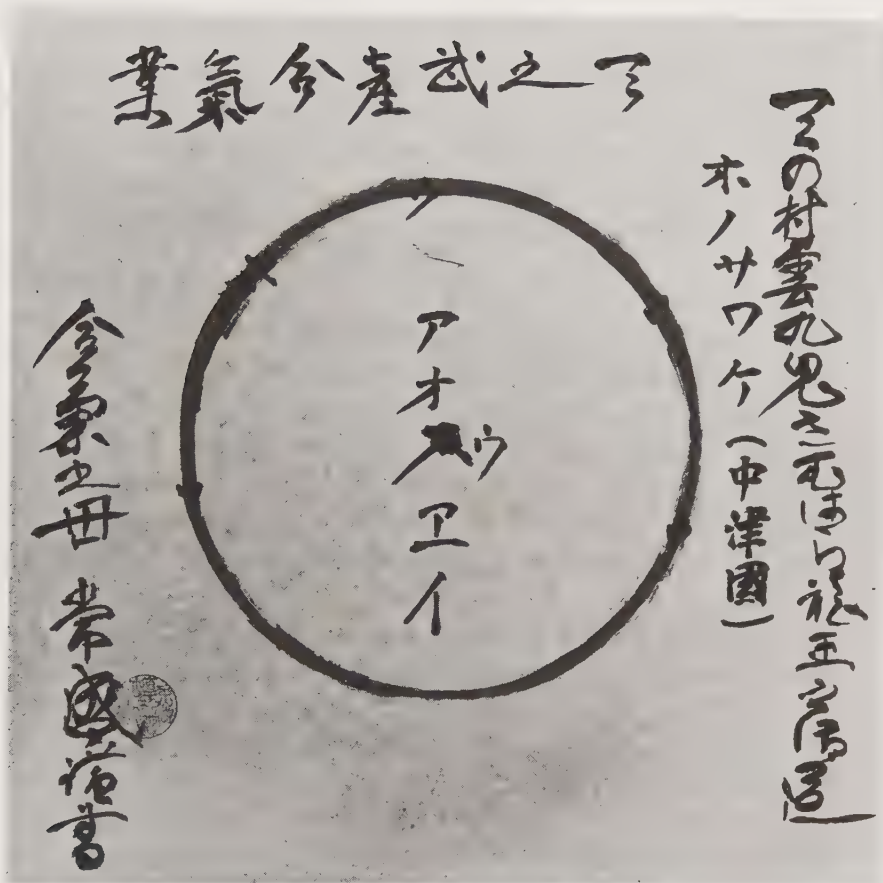 天之武産合氣業
天の村雲九鬼さむはら龍王
ホノサワケ（中津國）
ア
オ
ウ
ヱ
イ
合氣之 常盛 謹書